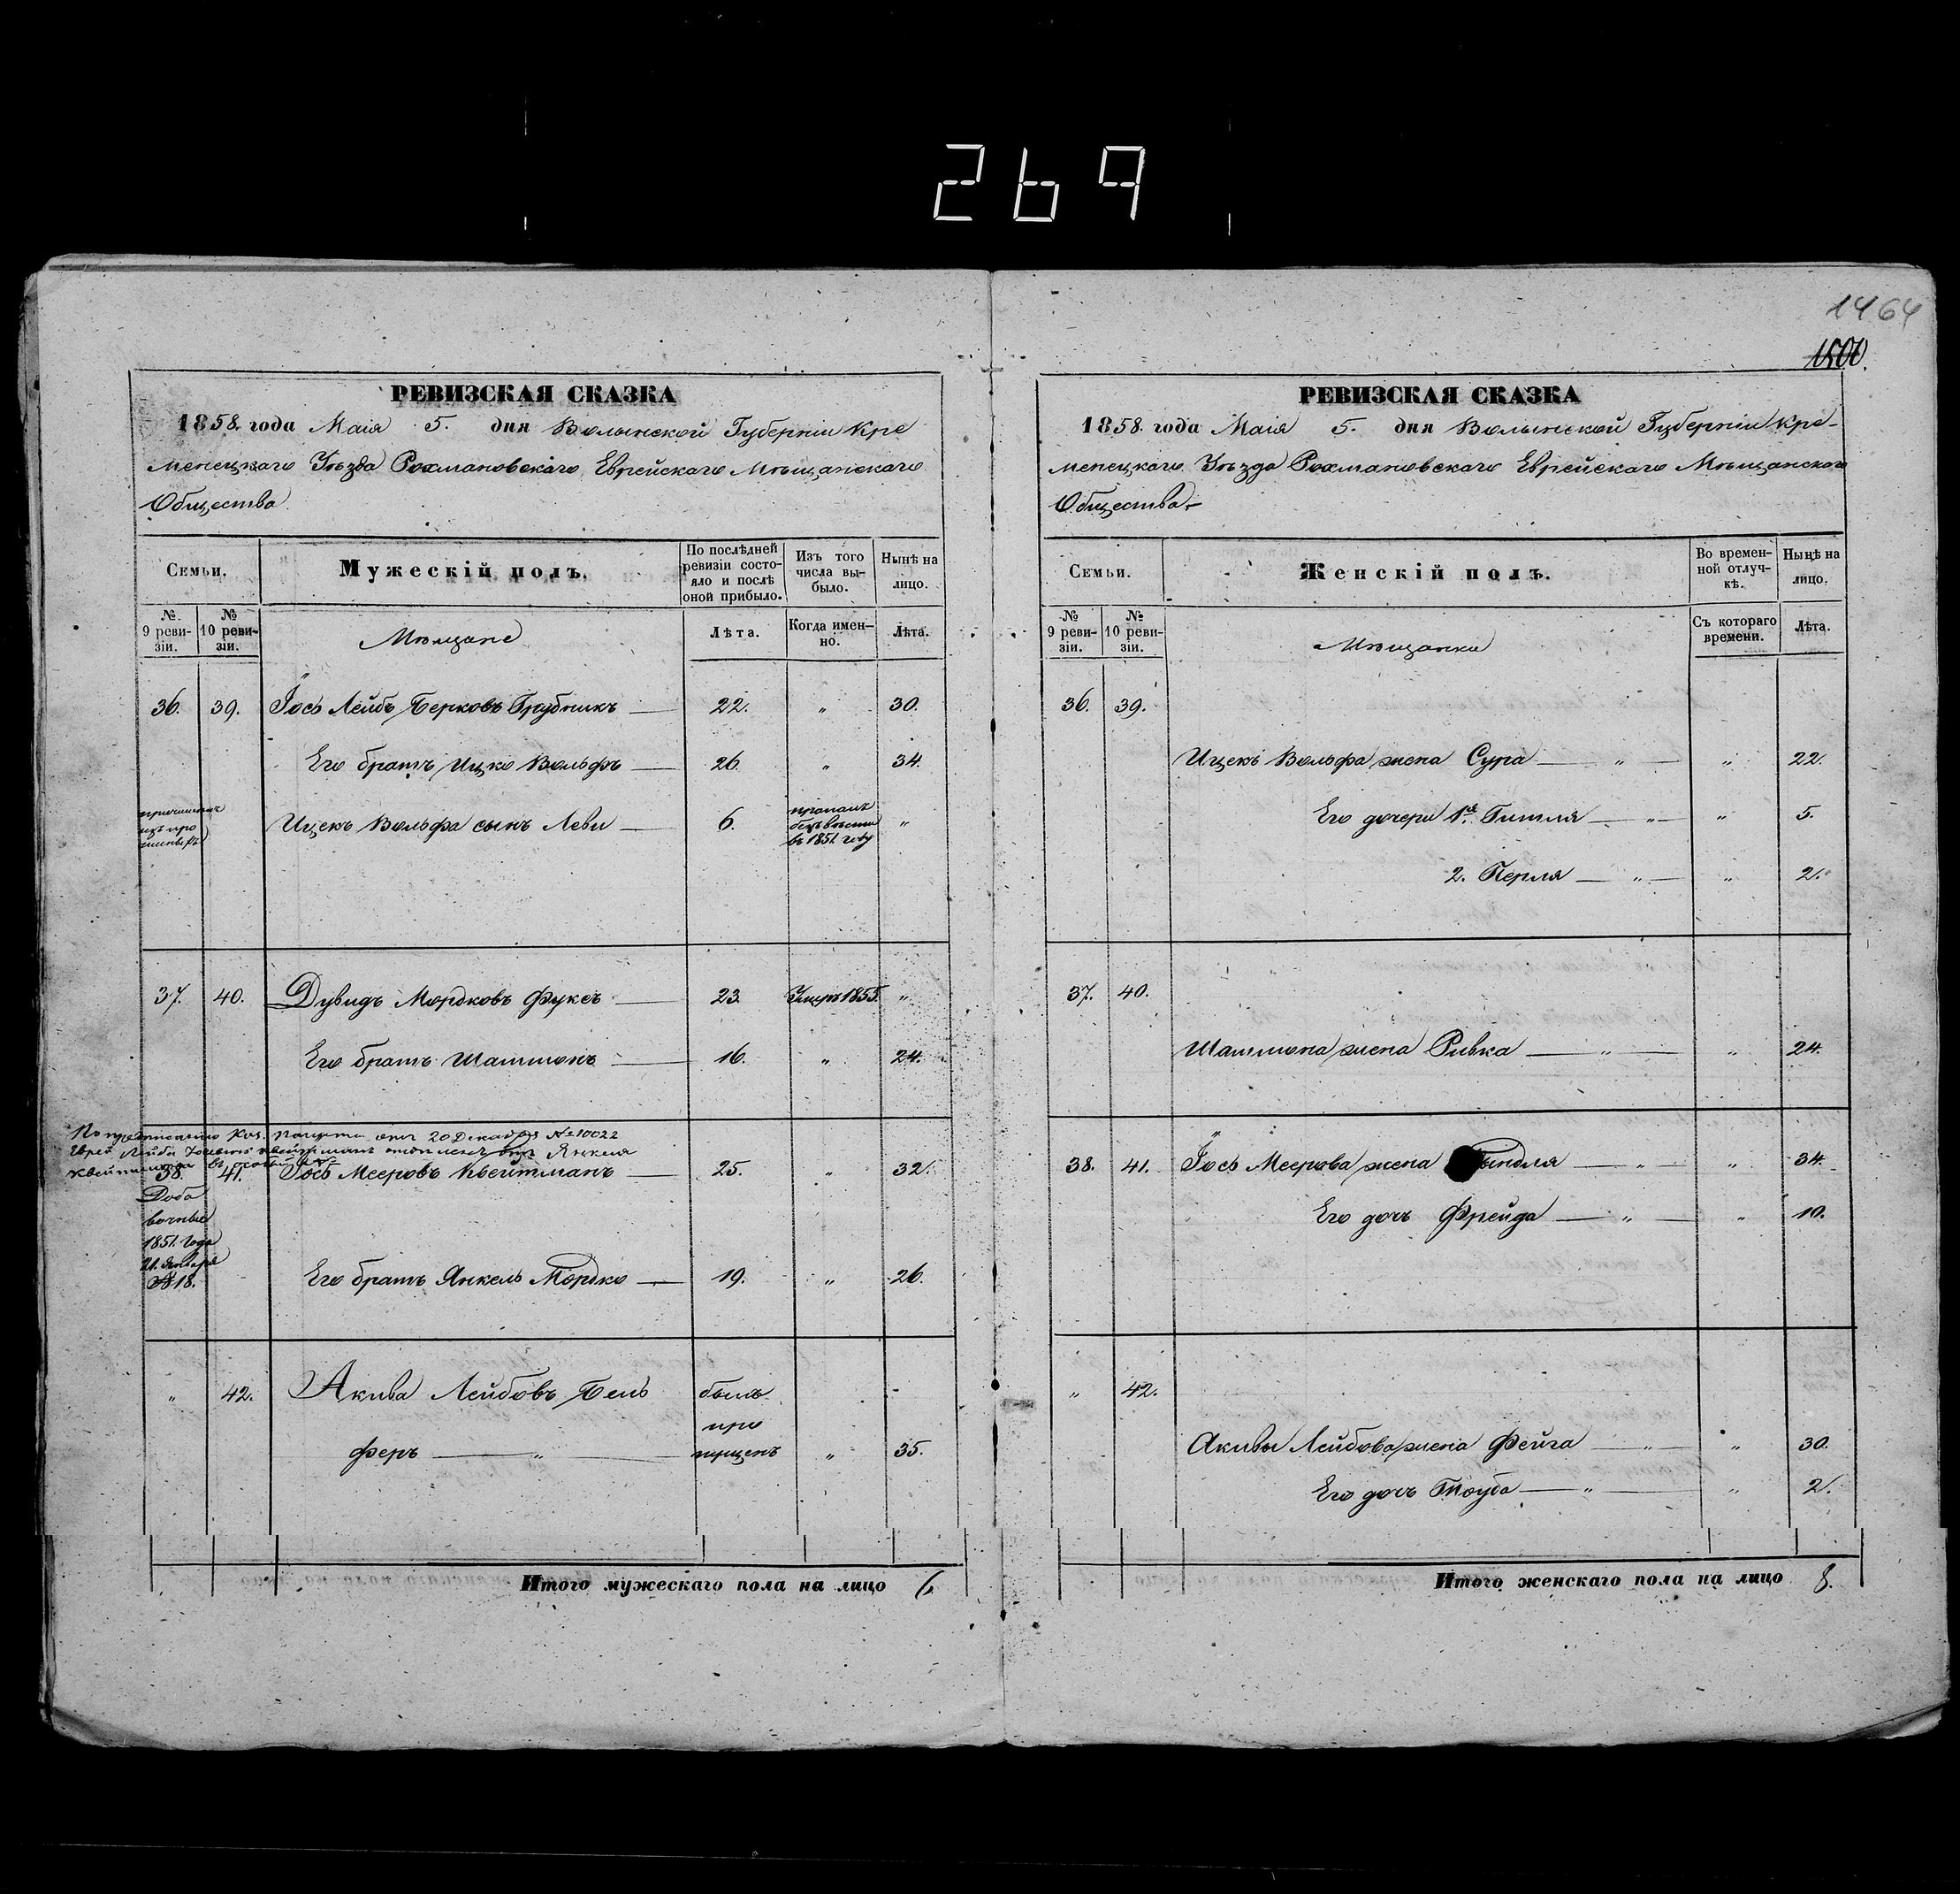 269
1464
1500.
РЕВИЗСКАЯ СКАЗКА
1858. года Маія 5. дня Волынской Губерніи Кре
менецкаго Уѣзда Рохмановскаго Еврейскаго Мѣщанскаго
Общества
Семьи.
Мужескій полъ.
По послѣдней ревизіи состояло и послѣ оной прибыло.
Изъ того числа выбыло.
Нынѣ на лицо.
№ 9 ревизіи.
№ 10 ревизіи.
Мѣщане
Лѣта.
Когда именно.
Лѣта.
36. 39. Іось Лейбъ Берковъ Грубникъ — 22. „ 30.
Его братъ Ицко Вольфъ — 26. „ 34.
Ицекъ Вольфа сынъ Леви — 6. „
пропалъ
безъ вѣсти
въ 1851 году
37. 40. Дувидъ Мордковъ Фуксъ — 23. Умеръ 1855. „
Его братъ Шамшонъ — 16. „ 24.
По предписанію Каз. Палаты отъ 20 Декабря № 10022
Еврей Лейба Квейтманъ отъ Янкеля
38. 41. Іось Мееровъ Квейтманъ — 25. „ 32.
Доба
вочные
1851. года
21. Января
№ 18.
Его братъ Янкель Мордко — 19. „ 26.
„ 42. Акива Лейбовъ Бель
феръ — „ —
былъ
про
пущенъ „ 35.
Итого мужескаго пола на лицо 6.
РЕВИЗСКАЯ СКАЗКА
1858. года Маія 5. дня Волынской Губерніи Кре-
менецкаго Уѣзда Рохмановскаго Еврейскаго Мѣщанскаго
Общества
Семьи.
Женскій полъ.
Во временной отлучкѣ.
Нынѣ на лицо.
№ 9 ревизіи.
№ 10 ревизіи.
Мѣщанки
Съ котораго времени.
Лѣта.
36. 39.
Ицекъ Вольфа жена Сура — „ — „ 22.
Его дочери 1я Гитля — „ — „ 5.
2. Перля — „ — „ 2.
37. 40.
Шамшона жена Ривка — „ — „ 24.
38. 41. Іось Меерова жена Гиндля — „ — „ 34.
Его дочь Фрейда — „ — „ 10.
„ 42.
Акивы Лейбова жена Фейга — „ — „ 30.
Его дочь Тоуба — „ — „ 2.
Итого женскаго пола на лицо 8.